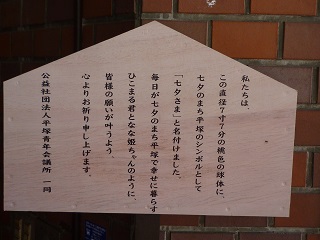 私たちは、
この直径7寸7分の桃色の球体に、
七夕のまち平塚のシンボルとして
「七夕さま」と名付けました。
毎日が七夕のまち平塚で幸せに暮らす
ひこまる君となな姫ちゃんのように、
皆様の願いが叶うよう、
心よりお祈り申し上げます。
公益社団法人平塚青年会議所 一同